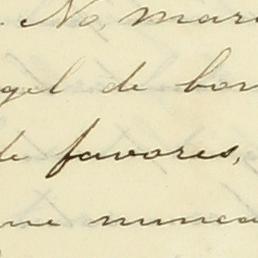 . No, mari
gel de bon
de favores,
ue nunca